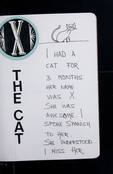 X
THE CAT
I HAD A
CAT FOR
3 MONTHS
HER NAME
WAS X.
SHE WAS
AWESOME I
SPOKE SPANISH
TO HER.
SHE UNDERSTOOD.
I MISS HER.